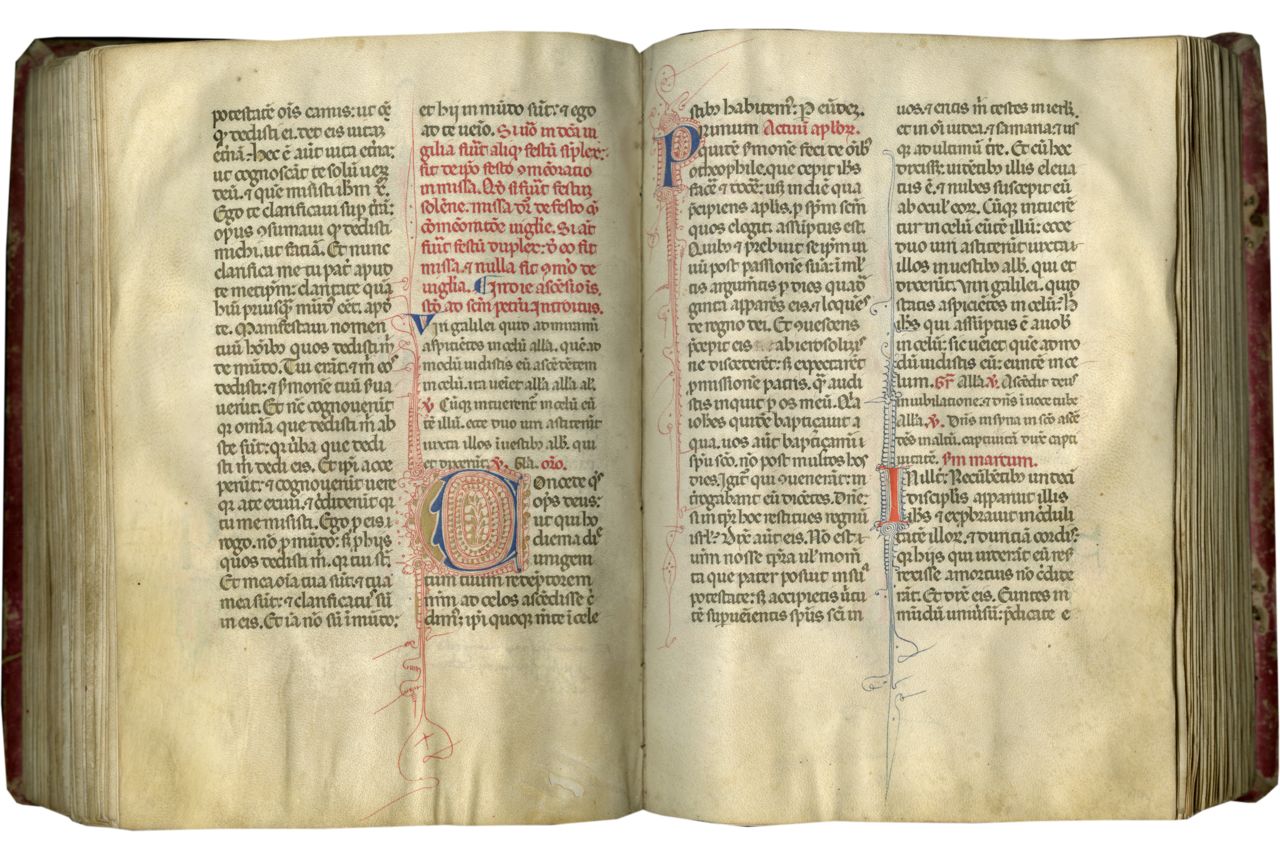 potestatē oīs carnis: ut oē
qd dedisti ei. det eis uitaz
etnā. Hec ē aūt uita etna:
ut cognoscāt te solū uez
deū. & quē misisti ihm xp̄.
Ego te clarificaui sup trā:
opus 9sumaui qd dedisti
michi. ut faciā. Et nunc
clarifica me tu pat apud
te metipm: claritate quā
hui priusq̄ mūd eēt. apd
te. Manifestaui nomen
tuū hoib quos dedisti m
de mūdo. Tui erāt: & m eos
dedisti: & smonē tuū sua
uerūt. Et nc cognouerūt
qr omīa que dedisti m ab
ste sūt: qr uba que dedi
sti m dedi eis. Et ipi acce
perūt: & cognouerūt uere
qr a te exiui. & cdiderūt qr
tu me misisti. Ego p eis
rogo. nō p mūdo: s; p hys
quos dedisti m. qr tui st.
Et mea oīa tua sūt: & tua
mea sūt: & clarificat sū
in eis. Et iā nō sū i mūdo:
et hij in mūdo sūt: & ego
ad te uenio. Si uō in dca ui
gilia fiūt aliqd festū siplex:
fit de ipo festo 9memoratio
in missa. Qd si fiūt festiz
solēne. missa dr de festo c
9memoratōe uiglie. Si aūt
fūit festū duplex: de eo fit
missa. & nulla fit 9mō de
uiglia. C In die ascēsiois.
stō ad scm petrū. Introitus.
Viri galilei quid admiramī
aspiciētes in celū alla. quēad
modū uidistis eū ascēdētem
in celū. ita ueiet alla alla all.
℣ Cūqz intuerent in celū eū
tē illū. ecce duo uiri astiterūt
iuxta illos i uestib alb. qui
et dixerūt. ℣. Gla. orō.
Concede qs
ops deus:
ut qui ho
dierna die
unigeni
tum tuum redēptorem
nrm ad celos ascēdisse c
dim: ipi quoqz mte i cele
stib habitem. P eūdez.
Primum Actuū aplorz.
quidē smonē feci de oīb
o theophile. que cepit ihs
facē & docē: usqz in diē qua
pcipiens aplis. p spm scm
quos elegit. assūptus est.
Quib & prebuit seipm ui
uū post passionē suā: i mul
tis argumtis p dies quad
ginta apparēs eis. & loques
de regno dei. Et quescens
pcepit eis ab ierosolimis
ne discederēt: s; expectarēt
pmissionē patris. qm audi
stis inquit p os meū. Qr
iohes quidē baptizauit a
qua. uos aūt baptizamī i
spu sco. nō post multos hos
dies. Igit qui quenerāt: in
trogabant eū dicētes. Dne:
si in tpr hoc restitues regnū
isrl. Dix aūt eis. Nō est
urm nosse tpra ul mom
ta que pater posuit in sua
potestate: s; accipietis uirtu
tē supuenientis spūs sci in
uos. & eritis m testes in ierl.
et in oī iudea. & samaria: & us
qz ad ultimū tre. Et cū hoc
dixiss: uidētib illis eleua
tus ē. & nubes suscepit eū
ab ocul eor. Cūqz intuere
tur in celū eūtē illū: ecce
duo uiri astiterūt iuxta
illos in uestib alb. qui et
dixerūt. Viri galilei. quid
statis aspiciētes in celū? H
ihs qui assūptus ē a uob
in celū: sic ueiet quēadmo
dū uidistis eū: eūntē in ce
lum. Gr Alla ℣. Ascēdit deus
in iubilatione. & dns i uoce tube
alla. ℣. Dns in syna in sco ascē
dēs in altū. captiuitā dux capti
uitatē. Sm marcum.
In illo t. Recūbētib undeci
discipulis apparuit illis
ihs & exprobrauit incduli
tatē illor. & duritiam cordis:
qr hijs qui uiderāt eū res
rexisse a mortuis nō cdide
rāt. Et dix eis. Eūntes in
mūdū uniusū: pdicate e